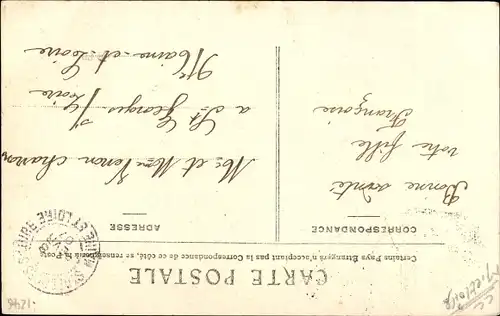 CARTE POSTALE
Certains Pays Étrangers n'acceptant pas la Correspondance de ce côté, se renseigner à la Poste
CORRESPONDANCE
Bonne santé
votre fille
Françoise
ADRESSE
Mr et Mme Veron
a St Georges s/Loire
Maine-et-Loire
1246